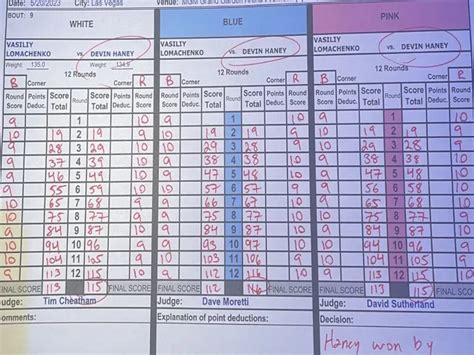 Date: 5/20/2023 City: Las Vegas Venue: MGM Grand Garden Arena
BOUT: 9
WHITE BLUE PINK
VASILIY VASILIY VASILIY
LOMACHENKO vs. DEVIN HANEY LOMACHENKO vs. DEVIN HANEY LOMACHENKO vs. DEVIN HANEY
Weight: 135.0 Weight: 134.9
12 Rounds 12 Rounds 12 Rounds
B Corner Corner R B Corner Corner R B Corner Corner R
Round Score Points Deduc. Score Total Round Score Total Points Deduc. Round Score Round Score Points Deduc. Score Total Round Score Total Points Deduc. Round Score Round Score Points Deduc. Score Total Round Score Total Points Deduc. Round Score
9 1 10 9 1 10 9 1 10
10 19 2 19 9 10 19 2 19 9 10 19 2 19 9
9 28 3 29 10 10 29 3 28 9 10 29 3 28 9
9 37 4 39 10 9 38 4 38 10 9 38 4 38 10
9 46 5 49 10 9 47 5 48 10 9 47 5 48 10
9 55 6 59 10 10 57 6 57 9 9 56 6 58 10
10 65 7 68 9 9 66 7 67 10 10 66 7 67 9
10 75 8 77 9 9 75 8 77 10 9 75 8 77 10
9 84 9 87 10 9 84 9 87 10 9 84 9 87 10
10 94 10 96 9 9 93 10 97 10 10 94 10 96 9
10 104 11 105 9 10 103 11 106 9 10 104 11 105 9
9 113 12 115 10 9 112 12 116 10 9 113 12 115 10
FINAL SCORE 113 115 FINAL SCORE FINAL SCORE 112 116 FINAL SCORE FINAL SCORE 113 115 FINAL SCORE
Judge: Tim Cheatham Judge: Dave Moretti Judge: David Sutherland
Comments: Explanation of point deductions: Decision:
Haney won by